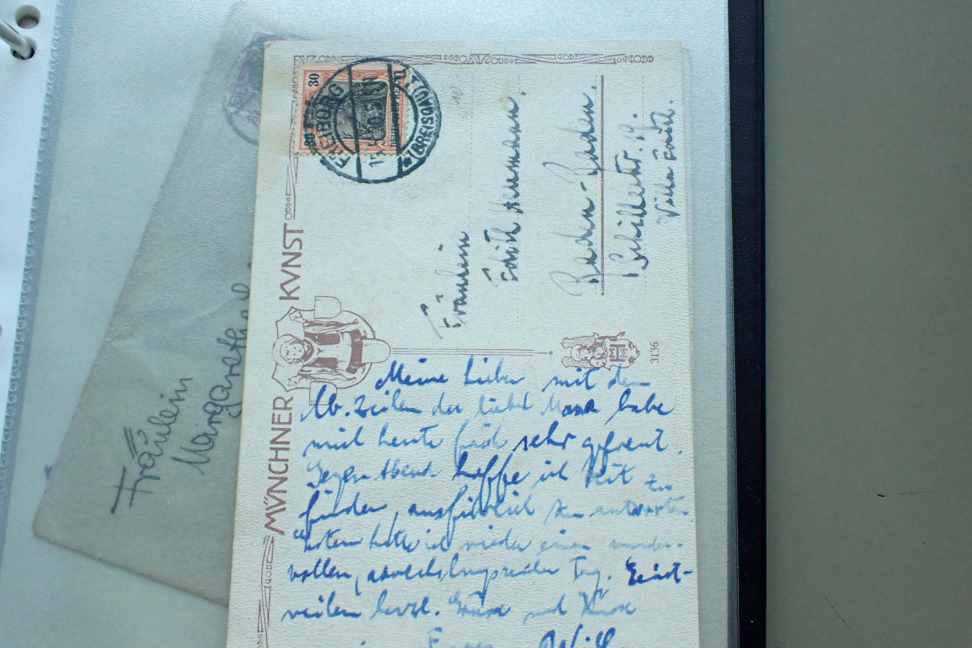 30
FREIBURG (BREISGAU)
MÜNCHNER KVNST
3136
Fräulein
Edith
Baden-Baden.
Schillerstr. 19.
Villa
Meine Lieben mit den
lb. Zeilen der liebe Mama habe
mich heute früh sehr gefreut.
Gegen Abend hoffe ich Zeit zu
finden, ausführlich zu antworten
Gestern hatte ich wieder einen wunder-
vollen, abwechslungsreichen Tag. Einst-
weilen herzl. Grüsse und Küsse
Fräulein
Margarethe